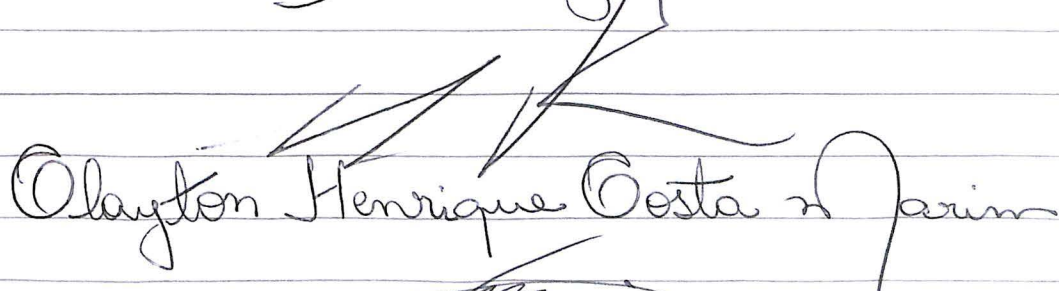 Clayton Henrique Costa Marim